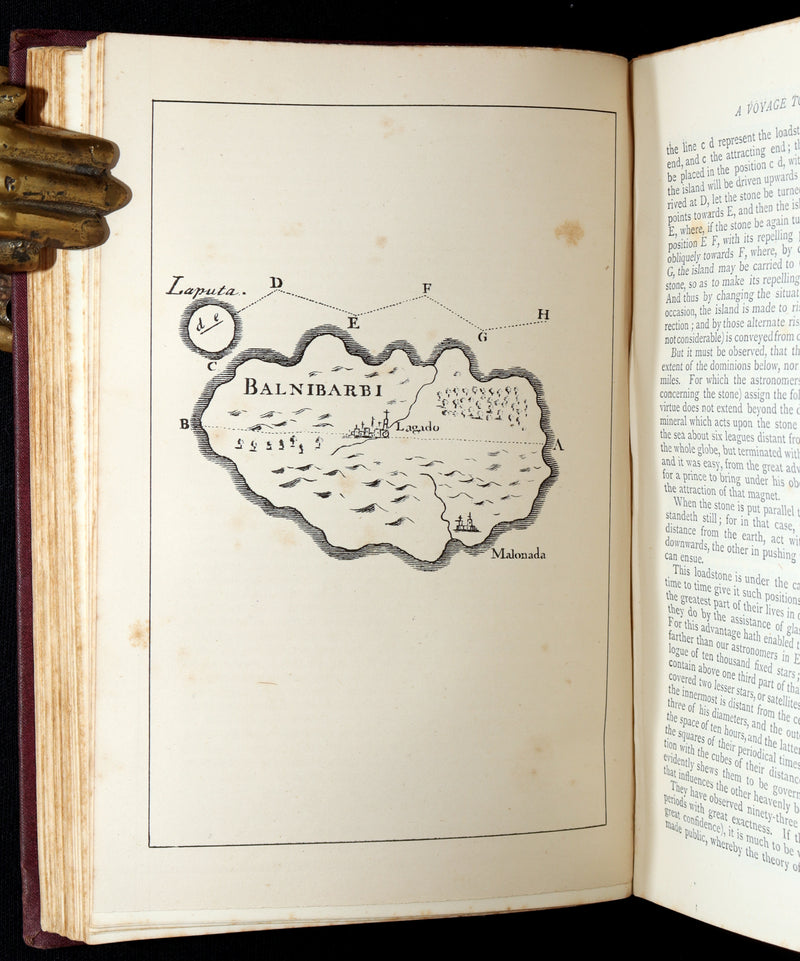 Laputa.
D
F
H
E
G
d e
C
BALNIBARBI
B
Lagado
A
Malonada
A VOYAGE TO
the line c d represent the loadst
end, and c the attracting end; th
be placed in the position c d, wit
the island will be driven upwards
rived at D, let the stone be turne
points towards E, and then the isl
E, where, if the stone be again tu
position E F, with its repelling
obliquely towards F, where, by
G, the island may be carried to
stone, so as to make its repelling
And thus by changing the situat
occasion, the island is made to ris
rection; and by those alternate risi
not considerable) is conveyed from
But it must be observed, that th
extent of the dominions below, nor
miles. For which the astronomers
concerning the stone) assign the fol
virtue does not extend beyond the d
mineral which acts upon the stone
the sea about six leagues distant fro
the whole globe, but terminated with
and it was easy, from the great adv
for a prince to bring under his obe
the attraction of that magnet.
When the stone is put parallel t
standeth still; for in that case,
distance from the earth, act wit
downwards, the other in pushing
can ensue.
This loadstone is under the ca
time to time give it such positions
the greatest part of their lives in
they do by the assistance of gla
For this advantage hath enabled t
farther than our astronomers in E
logue of ten thousand fixed stars;
contain above one third part of tha
covered two lesser stars, or satellites
the innermost is distant from the ce
three of his diameters, and the out
the space of ten hours, and the latter
the squares of their periodical times
tion with the cubes of their distanc
evidently shews them to be govern
that influences the other heavenly b
They have observed ninety-three
periods with great exactness. If th
great confidence), it is much to be
made public, whereby the theory of